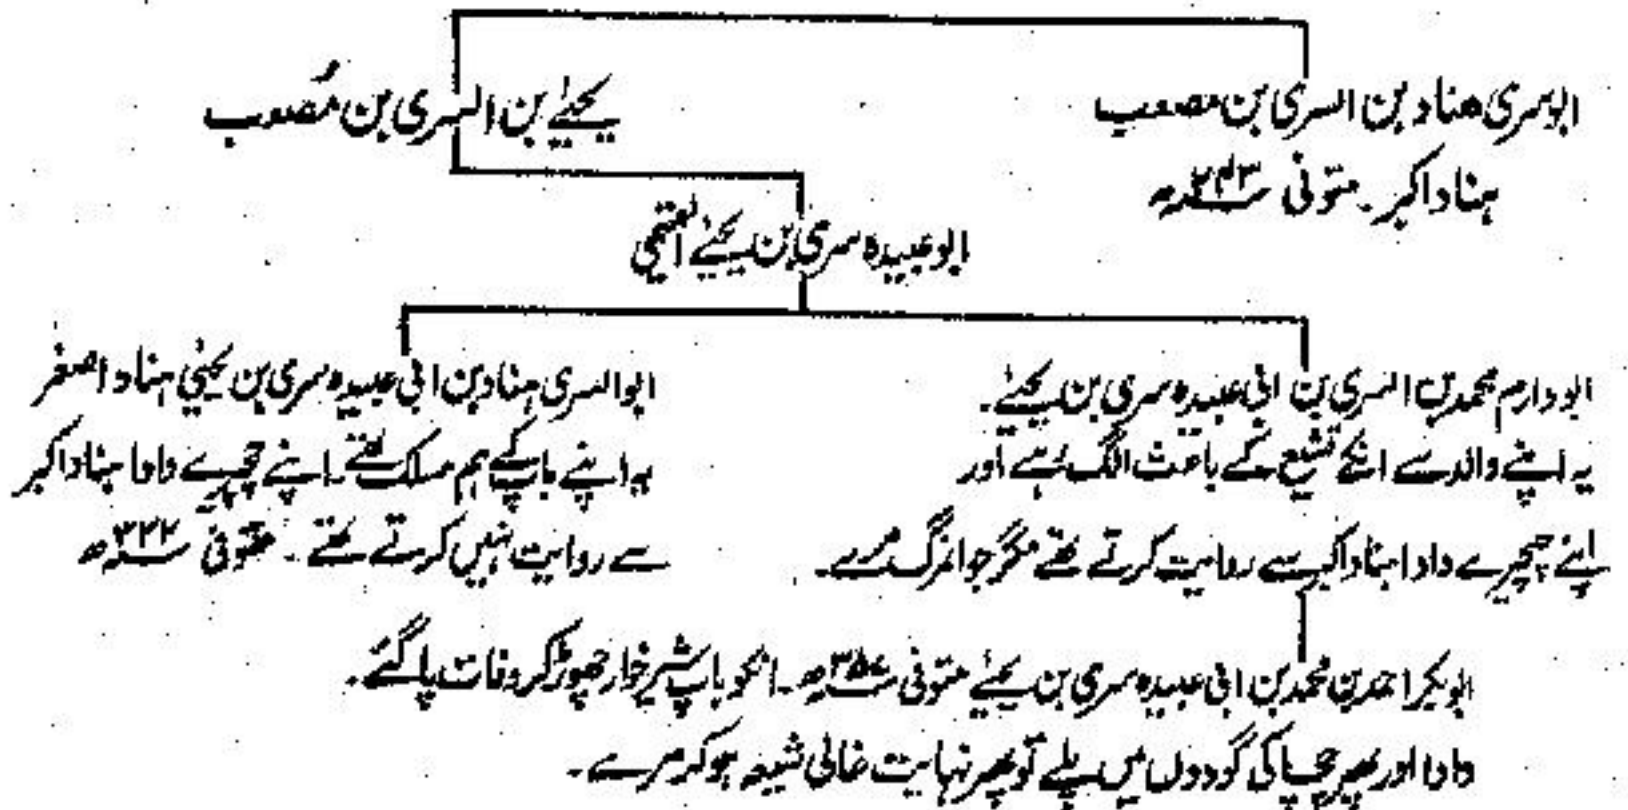 ابوسری ھناد بن السری بن مصعب
ہناد اکبر۔ متوفی ۲۴۳ھ
یحییٰ بن السری بن مُصعب
ابو عبیدہ سری بن یحییٰ التمیمی
ابو دارم محمد بن السری بن ابی عبیدہ سری بن یحییٰ۔
یہ اپنے والد سے انکے تشیع کے باعث الگ رہے اور
اپنے چچیرے دادا ہناد اکبر سے روایت کرتے تھے مگر جوانمرگ مرے۔
ابو السری ہناد بن ابی عبیدہ سری بن یحییٰ ہناد اصغر
یہ اپنے باپ کے ہم مسلک تھے۔ اپنے چچیرے دادا ہناد اکبر
سے روایت نہیں کرتے تھے۔ متوفی ۳۲۲ھ
ابوبکر احمد بن محمد بن ابی عبیدہ سری بن یحییٰ متوفی ۳۵۷ھ۔ انکو باپ شیر خوار چھوڑ کر وفات پا گئے۔
دادا اور پھر چچا کی گودوں میں پلے تو پھر نہایت غالی شیعہ ہو کر مرے۔